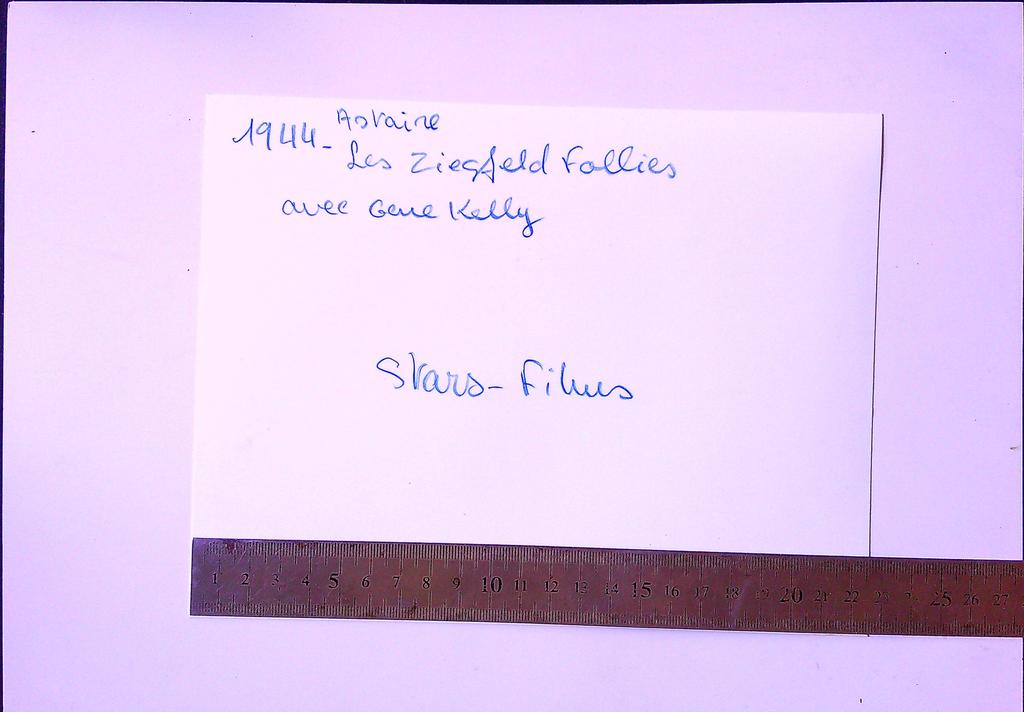 Astaire
1944- Les Ziegfeld Follies
avec Gene Kelly
Stars- Films
1 2 3 4 5 6 7 8 9 10 11 12 13 14 15 16 17 18 19 20 21 22 23 24 25 26 27